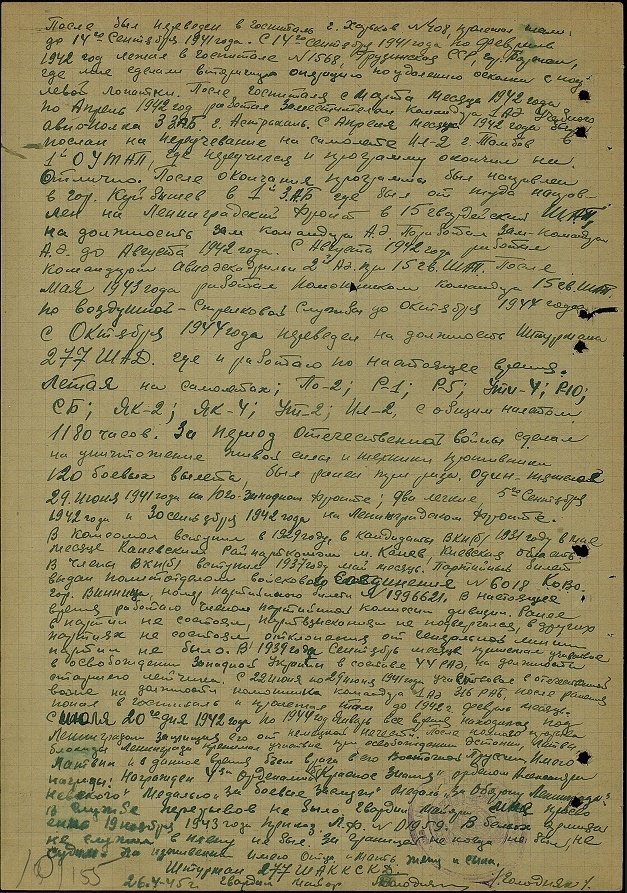 После был переведен в госпиталь г. Харьков №408,
до 14го Сентября 1941 года. С 14го Сентября 1941 года по Февраль
1942 год лежал в госпитале №1568, Грузинская ССР,
где мне сделали вторичную операцию по удалению осколка с
левой лопатки. После госпиталя с Марта месяца 1942 года
по Апрель 1942 год работал Заместителем Командира 1 АЭ
авиополка 3 ЗАБ. г. Астрахань. С Апреля месяца 1942 года был
послан на переучевание на самолете Ил-2 г. Тамбов в
1й ОУТАП, где переучился и программу окончил на
Отлично. После окончания программы был направлен
в гор. Куйбышев в 1й ЗАБ где был от туда направ-
лен на Ленинградский Фронт в 15 гвардейский ШАП,
на должность зам командира АЭ. Поработал Зам. командира
А.Э. до Августа 1942 года. С Августа 1942 году работал
командиром авиоэскадрильи 2й АЭ. при 15 гв. ШАП. После
Мая 1943 года работал помошником командира 15 гв ШАП.
по воздушной-Стрелковой Службы до октября 1944 года,
с Октября 1944 года переведен на должность Штурмана
277 ШАД. где и работаю по настоящее время.
Летая на самолетах; По-2; Р-1; Р5; Ути-4; Р10;
СБ; ЯК-2; ЯК-4; Ут-2; Ил-2, с общим налетом
1180 часов. За период Отечественной войны сделал
на уничтожение живой силы и техники противника
120 боевых вылета, был ранен три раза. Один-тяжелое
29 июня 1941 года на Юго-Западном Фронте; два легкие, 5го Сентября
1942 года и 30 сентября 1942 года на Ленинградском Фронте.
В Комсомол вступил в 1929 году, в кандидаты ВКП(б) 1931 году в мае
месяце Каневским Райпарткомом м. Канев, Киевская область
В члены ВКП(б) вступил 1937 году май месяц. Партийный билет
выдан политотделом войскового соединения №6018 КОВО.
гор. Винница, номер партийного билета №1996621. В настоящее
время работаю членом партийной комиссии дивизии. Ранее
в партии не состоял, партвзысканиям не подвергался, в других
партиях не состоял отклонения от генеральной линии
партии не было. В 1939 году Сентябрь месяц принимал участие
в освобождении Западной Украины в составе 44 РАЭ, на должности
старшего летчика. С 22 июня по 29 июня 1941 году участвовал в отечественной
войне на должности помошника командира АЭ 316 РАП, после ранения
попал в госпиталь и пролежал там до 1942 г февраль месяц.
С июля 20го дня 1942 года по 1944 год январь все время находился под
Ленинградом защищая его от немецкой нечести. После полного прорыва
блокады Ленинграда принимал участие при освобождении Эстонии, Литвы,
Латвии и в данное время бьем врага в его Восточной Пруссии. Имею
награды: Награжден орденами "Красное Знамя", орденом Александра
Невского", Медалью "За боевые Заслуги", Медаль "За Оборону Ленинграда".
В службе перерывов не было гвардии майора мне присво-
ено 19 ноября 1943 года приказ Л.Ф. № В белых армиях
не служил в плену не был. За границей не когда не был, не
судим. На иждивении имею Отца, мать, жену и сына.
Штурман 277 ШАККСКД.
26-4-45г гвардии майор
155